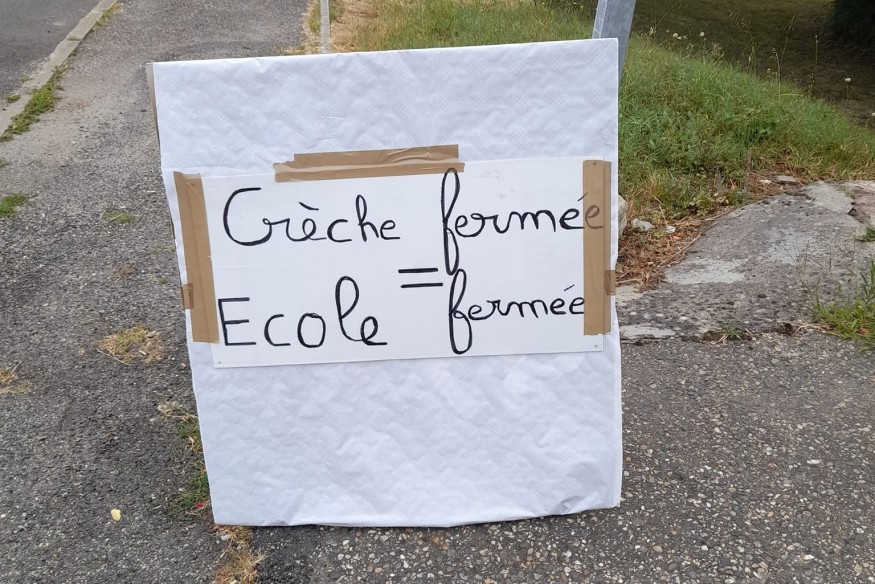 Crèche fermée
=
Ecole fermée